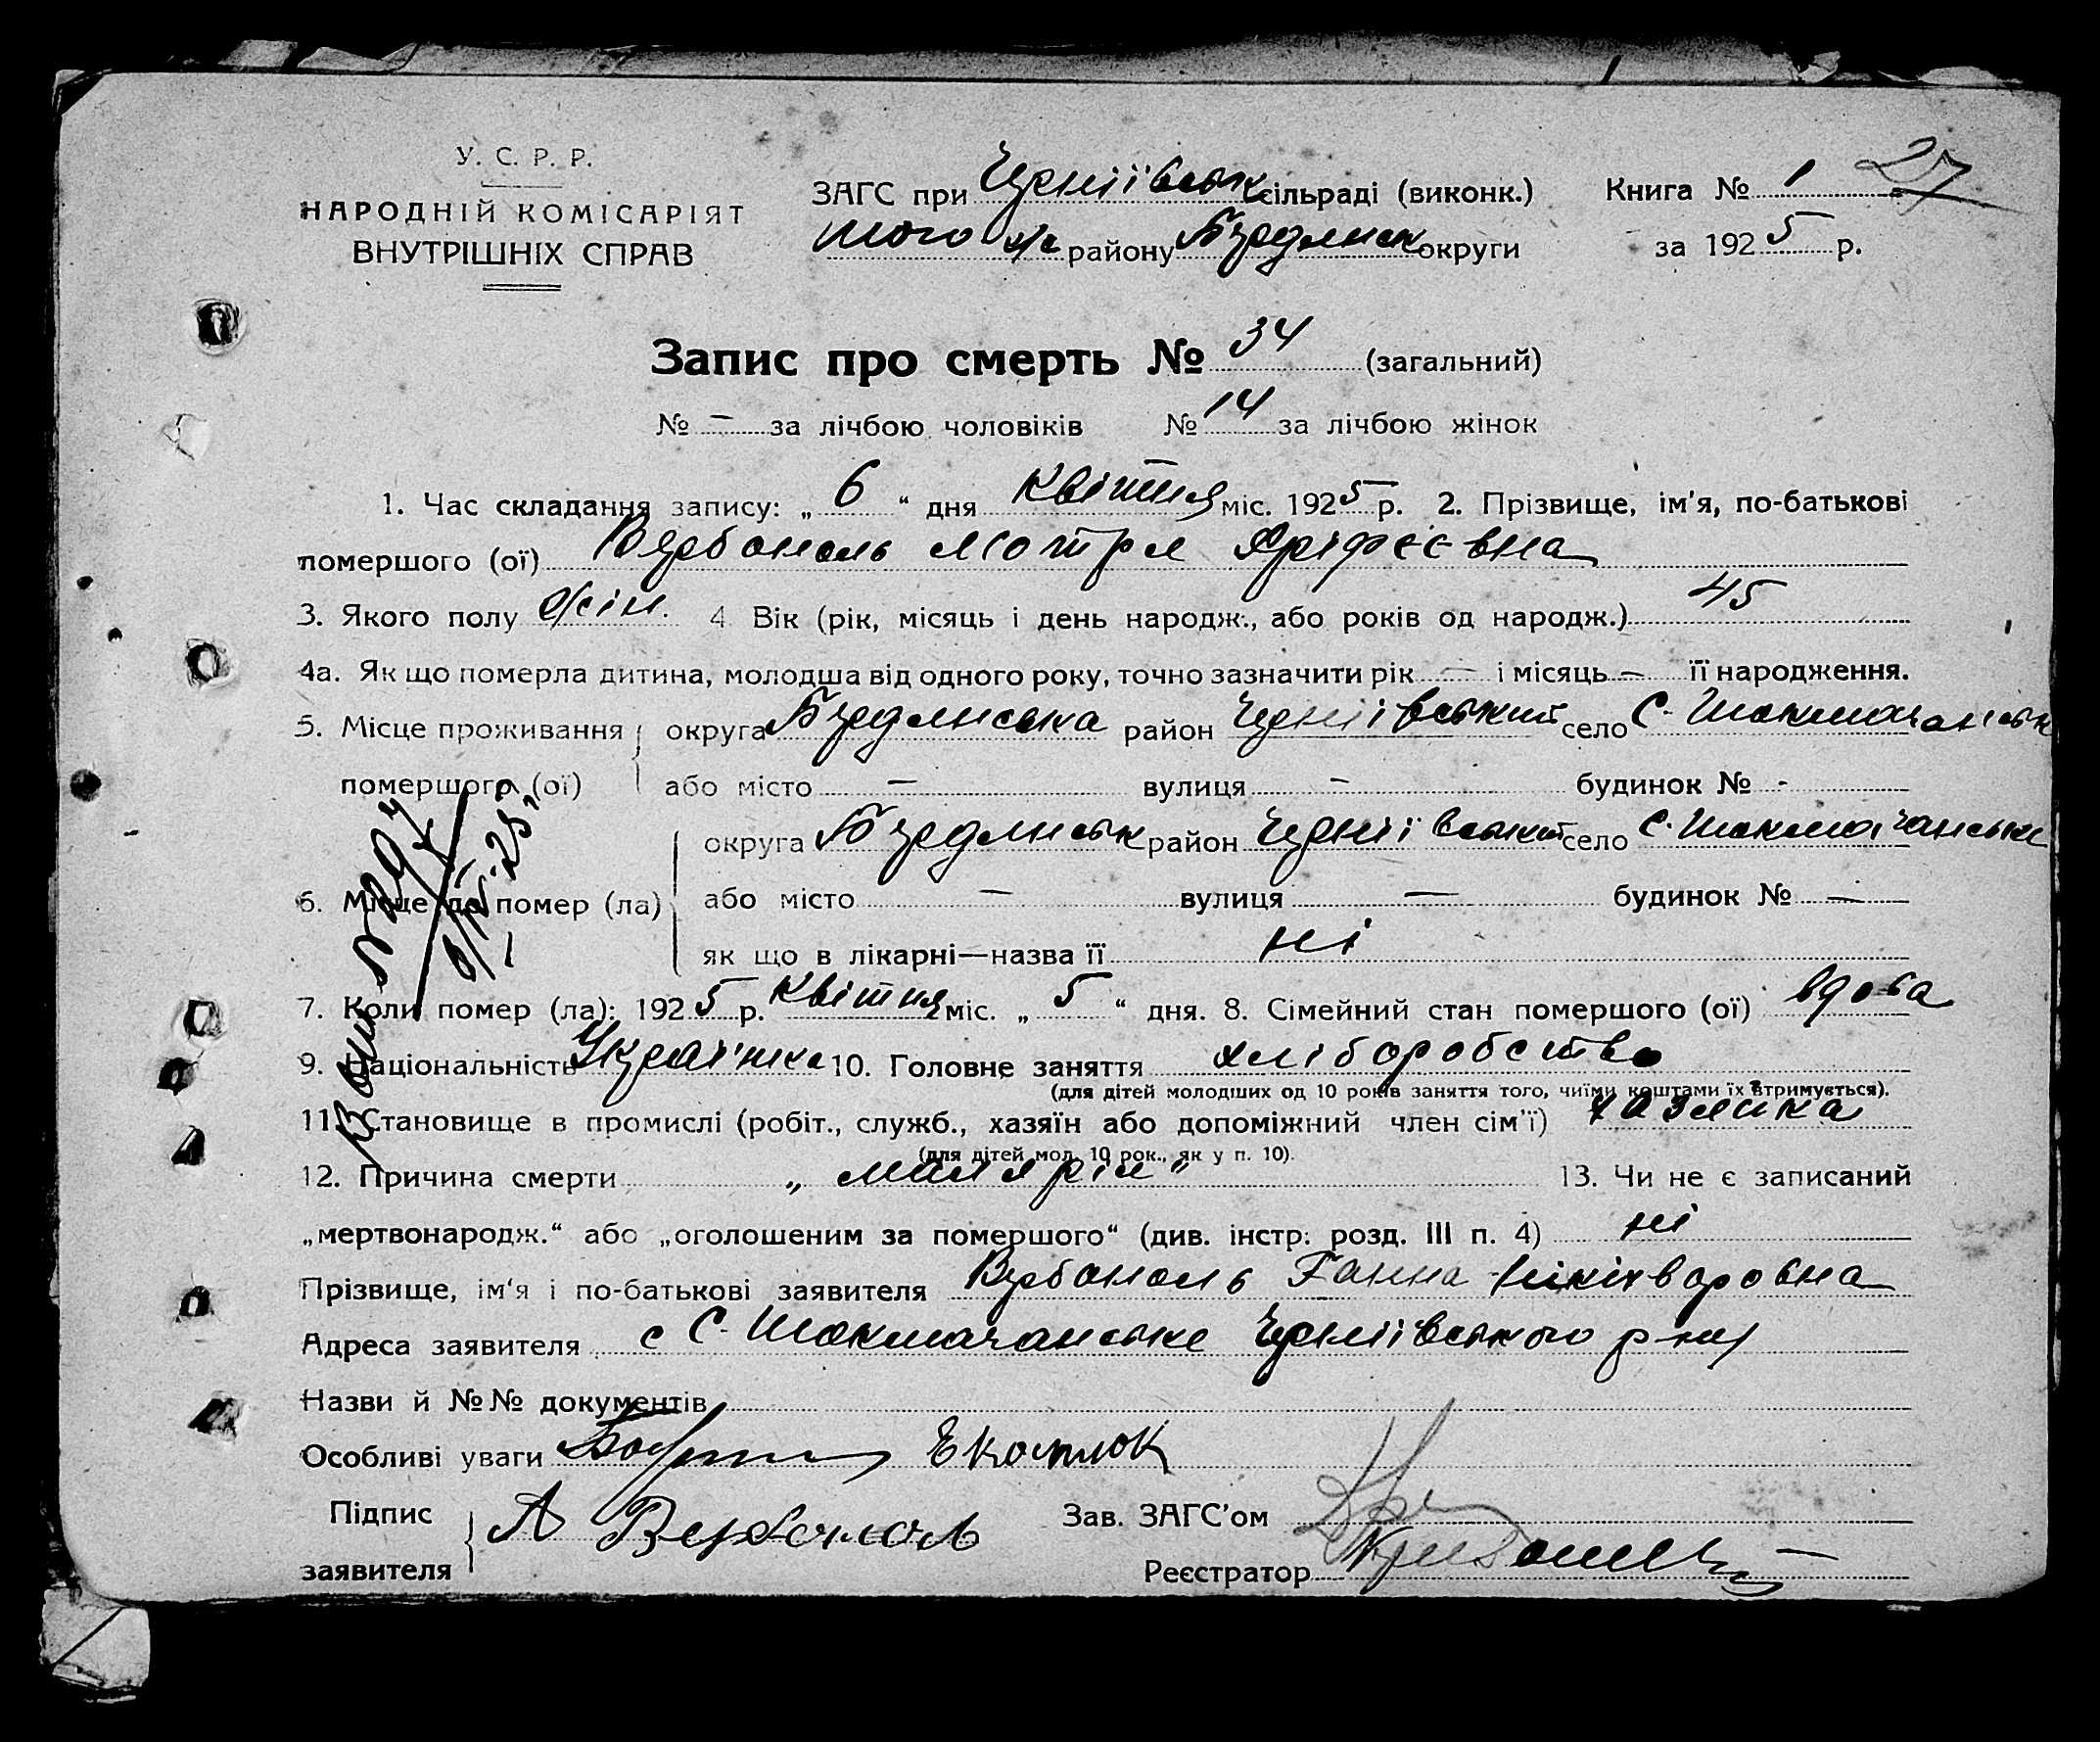 У. С. Р. Р.
НАРОДНІЙ КОМІСАРІЯТ
ВНУТРІШНІХ СПРАВ
ЗАГС при Черніївськ сільраді (виконк.)
того ж району Бердянськ округи
Книга № 1 27
за 1925 р.
Запис про смерть № 34 (загальний)
№ — за лічбою чоловіків № 14 за лічбою жінок
1. Час складання запису: „ 6 “ дня Квітня міс. 1925 р. 2. Прізвище, ім'я, по-батькові
помершого (ої) Вербоноль Мотря
3. Якого полу жін. 4 Вік (рік, місяць і день народж., або років од народж.) 45
4а. Як що померла дитина, молодша від одного року, точно зазначити рік — і місяць — її народження.
5. Місце проживання округа Бердянська район Черніївський село С-Шокмачанськ
помершого (ої) або місто — вулиця — будинок № -
округа Бердянськ район Черніївський село С-Шокмачанське
6. Місце де помер (ла) або місто — вулиця — будинок № —
як що в лікарні—назва її ні
7. Коли помер (ла): 1925 р. Квітня міс. „ 5 “ дня. 8. Сімейний стан помершого (ої) вдова
9. Національність Українка 10. Головне заняття хліборобство
(для дітей молодших од 10 років заняття того, чиїми коштами їх втримується).
11. Становище в промислі (робіт., служб., хазяїн або допоміжний член сім'ї) хазяйка
(для дітей мол. 10 рок., як у п. 10).
12. Причина смерти „ малярія “ 13. Чи не є записаний
„мертвонародж.“ або „оголошеним за помершого“ (див. інстр: розд. III п. 4) ні
Прізвище, ім'я і по-батькові заявителя Вербоноль Ганна
Адреса заявителя с С-Шокмачанське Черніївського р-ну
Назви й №№ документів
Особливі уваги
Підпис
заявителя А Вербоноль
Зав. ЗАГС'ом
Реєстратор